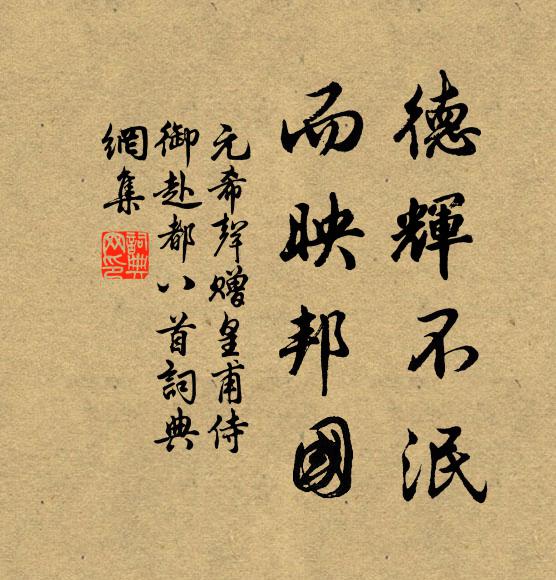 德輝不泯
而映邦國
元希聲贈皇甫侍
御赴都八首詞典
網集
詞典
網印